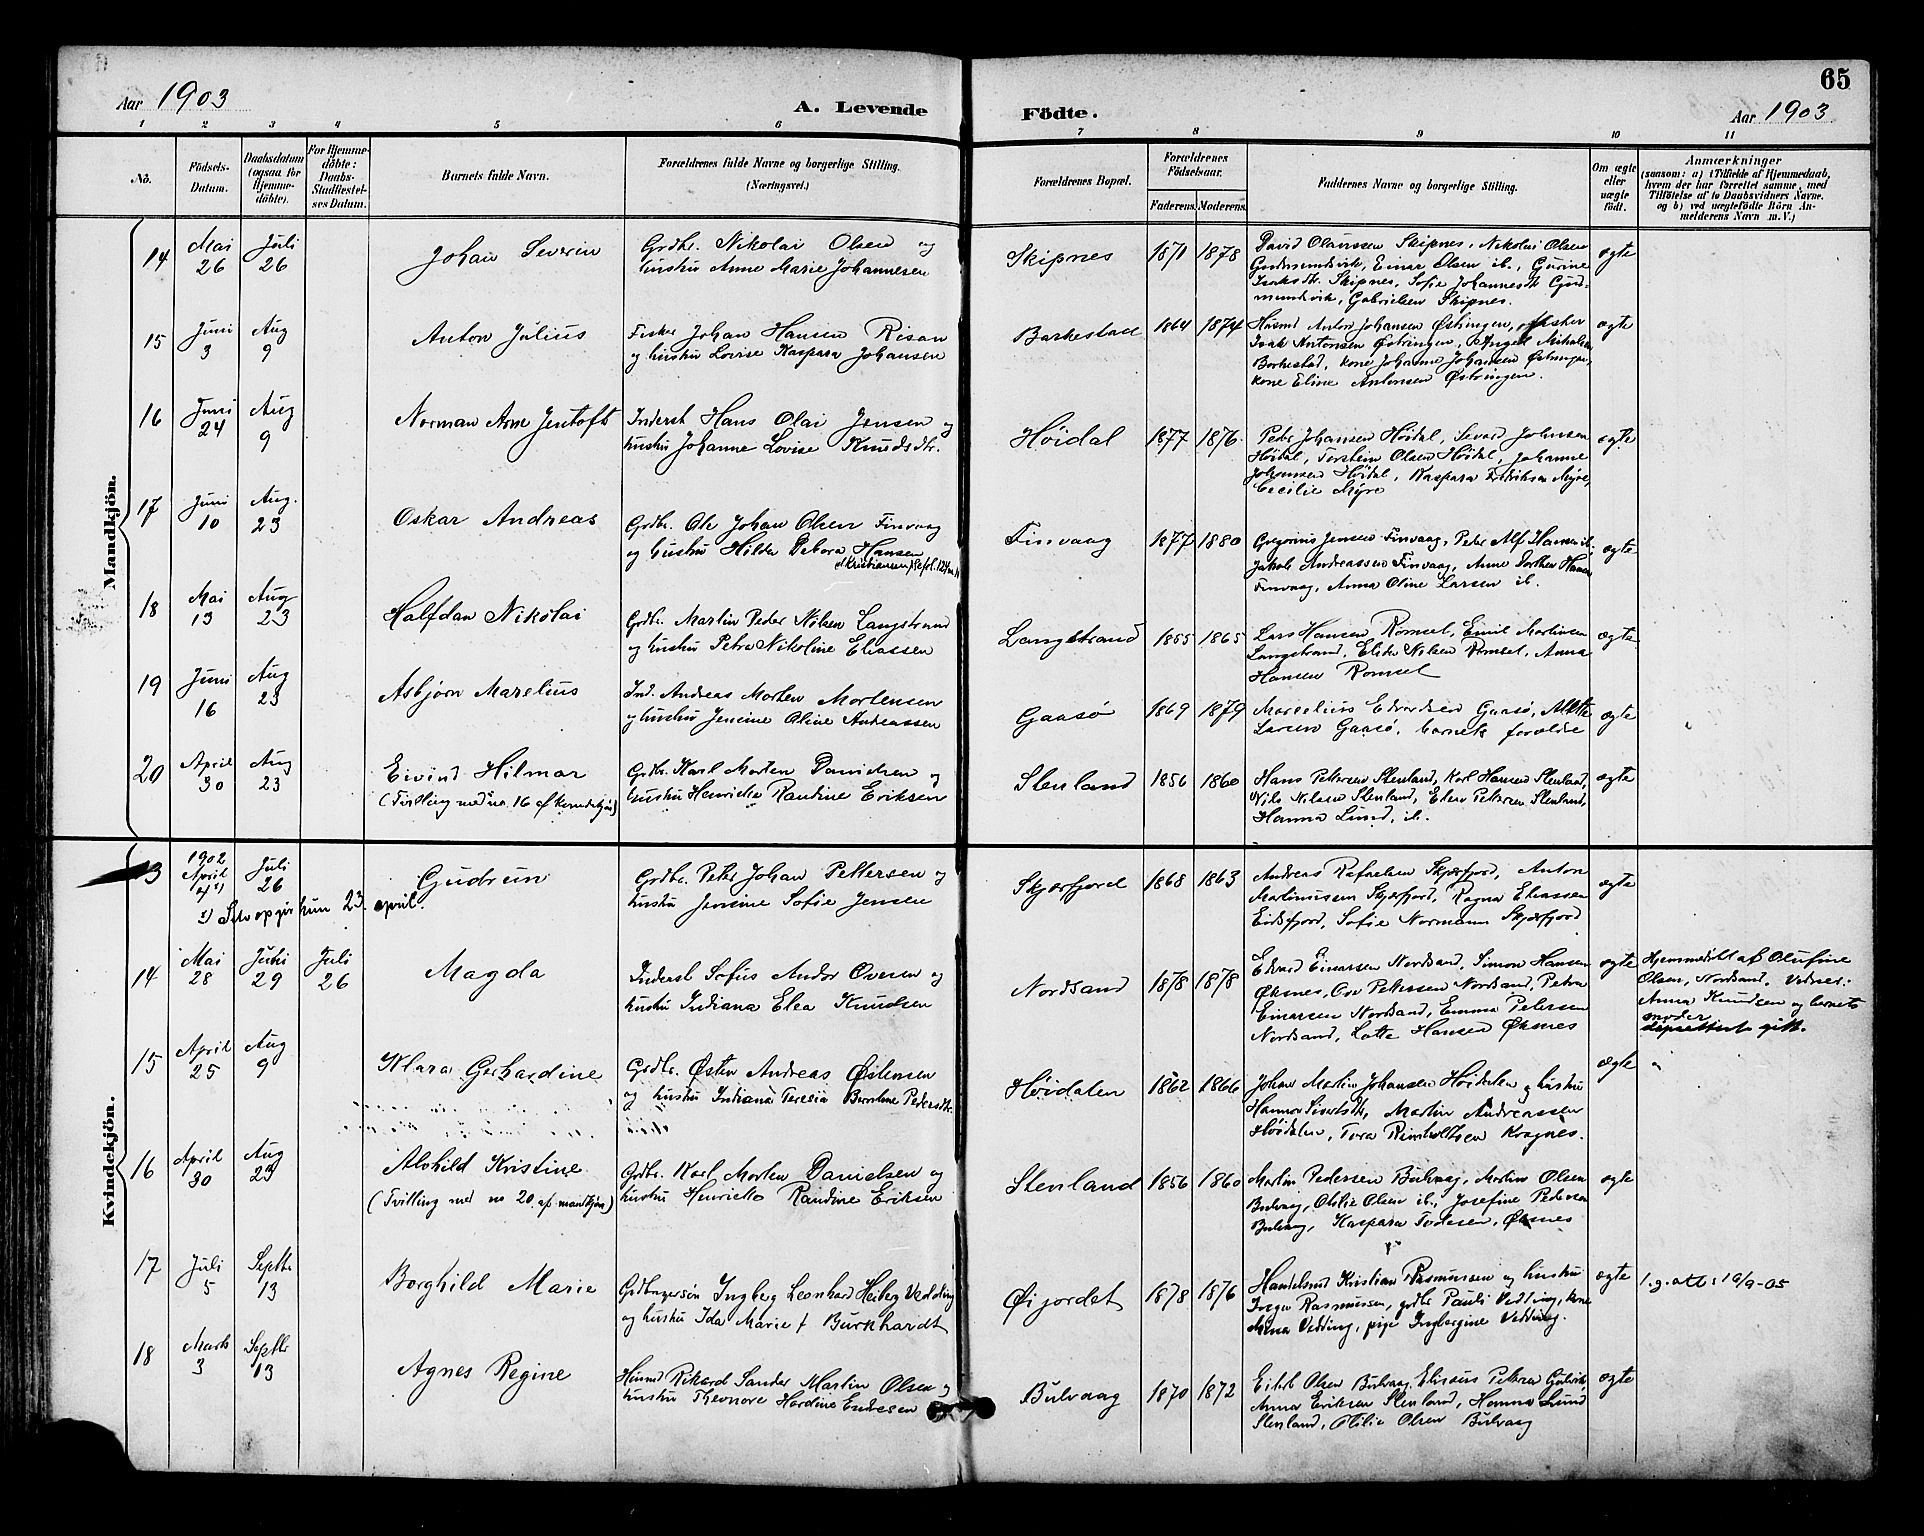 65
Aar 1903
A. Levende
Födte.
Aar 1903
1 2 3 4 5 6 7 8 9 10 11
No.
Födsels-
Datum.
Daabsdatum
(ogsaa for
Hjemme-
döbte).
For Hjemme-
döbte:
Daabs-
Stadfæstel-
ses Datum.
Barnets fulde Navn.
Forældrenes fulde Navne og borgerlige Stilling.
(Næringsvei.)
Forældrenes Bopæl.
Forældrenes
Födselsaar.
Faderens. Moderens.
Faddernes Navne og borgerlige Stilling.
Om ægte
eller
uægte
født.
Anmærkninger
(saasom: a) i Tilfælde af Hjemmedaab,
hvem der har forrettet samme, med
Tilföielse af to Daabsvidners Navne.
og b) ved uægtefödte Börn An-
melderens Navn m. V.)
Mandkjön.
14 Mai 26 Juli 26
Johan Severin
Grdbr. Nikolai Olsen og
hustru Anne Marie Johannesen
Skipnes 1871 1878
David Olaussen Skipnes, Nikolai Olsen
Gudmundsvik, Einar Olsen ib., Gurine
Isaksdt. Skipnes, Sofie Johannesdt Gud-
mundsvik, Gabrielsen Skipnes.
ægte
15 Juni 3 Aug 9
Anton Julius
Fisker Johan Hansen Risan
og hustru Lovise Kaspara Johansen
Barkestad 1864 1874
Husmd Anton Johansen Østringen, fisker
Isak Antonsen Østringen, Angel Mikalsen
Barkestad, kone Johanne Johansen Østringen,
kone Eline Antonsen Østringen.
ægte
16 Juni 24 Aug 9
Norman Arne Jentoft
Inderst Hans Olai Jensen og
hustru Johanne Lovise Knudsdtr.
Höidal 1877 1876.
Peder Johansen Höidal, Sevard Johnsen
Höidal, Torstein Olsen Höidal, Johanne
Johansen Höidal, Kaspara Fredriksen Myre,
Cecilie Myre
ægte
17 Juni 10 Aug. 23
Oskar Andreas
Grdbr. Ole Johan Olsen Finvaag
og hustru Hilda Debora Hansen
Finvaag 1877 1880
Gregorius Jensen Finvaag, Peder Alf Hansen ib.,
Jakob Andreassen Finvaag, Anne Dorthea Hansen
Finvaag, Anna Oline Larsen ib.
ægte
18 Mai 13 Aug 23
Halfdan Nikolai
Grdbr. Martin Peder Nilsen Langstrand
og hustru Petra Nikoline Eliassen
Langstrand 1855 1865
Lars Hansen Romsel, Emil Martinsen
Langstrand, Elika Nilsen Romsel, Anna
Hansen Romsel
ægte
19 Juni 16 Aug 23
Asbjørn Marelius
Ind. Andreas Morten Mortensen
og hustru Jensine Oline Andreassen
Gaasø 1869 1879
Marselius Edvardsen Gaasø, Alette
Larsen Gaasø, barnets forældre
ægte
20 April 30 Aug 23
Eivind Hilmar
(Tvilling med no. 16 af kvindekjøn)
Grdbr. Karl Morten Danielsen og
hustru Henrikke Randine Eriksen
Stenland 1856 1860
Hans Pettersen Stenland, Karl Hansen Stenland,
Nils Nilsen Stenland, Elen Pettersen Stenland,
Hanna Lund, ib.
ægte
Kvindekjön.
13 1902 April Juli 26
1) Selv opgir hun 23. april.
Gudrun
Grdbr. Peter Johan Pettersen og
hustru Jensine Sofie Jensen
Skjærfjord 1868 1863
Andreas Rafaelsen Skjærfjord, Anton
Martinussen Skjærfjord, Ragna Eliassen
Eidsfjord, Sofie Normann Skjærfjord
ægte
14 Mai 28 Juni 29 Juli 26
Magda
Inderst Sofus Andor Ovesen og
hustru Indiana Elea Knudsen
Nordsand 1878 1878
Edvard Einarsen Nordsand, Simon Hansen
Øksnes, Ove Pettersen Nordsand, Petra
Einarsen Nordsand, Emma Petersen
Nordsand, Lotte Hansen Øksnes
ægte
Hjemmedöbt af Olufine
Olsen, Nordsand. Vidner:
Anna Knudsen og barnets
moder
15 April 25 Aug 9
Klara Gerhardine
Grdbr. Østen Andreas Østensen
og hustru Indiana Teresia Berntine Pedersdtr.
Höidalen 1862 1866
Johan Martin Johansen Höidalen og hustru
Hanna Sivertsdt, Martin Andreassen
Höidalen, Tora Reinholtsen Kragnes.
ægte
16 April 30 Aug 23
Alvhild Kristine
(Tvilling med no 20 af mandkjøn)
Grdbr. Karl Morten Danielsen og
hustru Henrikke Randine Eriksen
Stenland 1856 1860
Martin Pedersen Bulvaag, Martin Olsen
Bulvaag, Otilie Olsen ib., Josefine Pedersen
Bulvaag, Kaspara Todesen, Øksnes
ægte
17 Juli 5 Septbr 13
Borghild Marie
Grdbrugersøn Ingberg Leonhard Heiberg Vedding
og hustru Ida Marie f Burkhardt
Øijordet 1878 1876
Handelsmd Kristian Rasmussen og hustru
Inger Rasmussen, grdbr Pauli Vedding, kone
Mina Vedding, pige Ingbergine Vedding.
ægte
1.g. att: 19/9-05
18 Marts 3 Septbr 13
Agnes Regine
Husmd Rikard Sander Martin Olsen og
hustru Theonore Hardine Endresen
Bulvaag 1870 1872
Eilert Olsen Bulvaag, Eliseus Petersen
Anna Eriksen Stenland, Hanna Lund
Stenland, Otilie Olsen Bulvaag
ægte